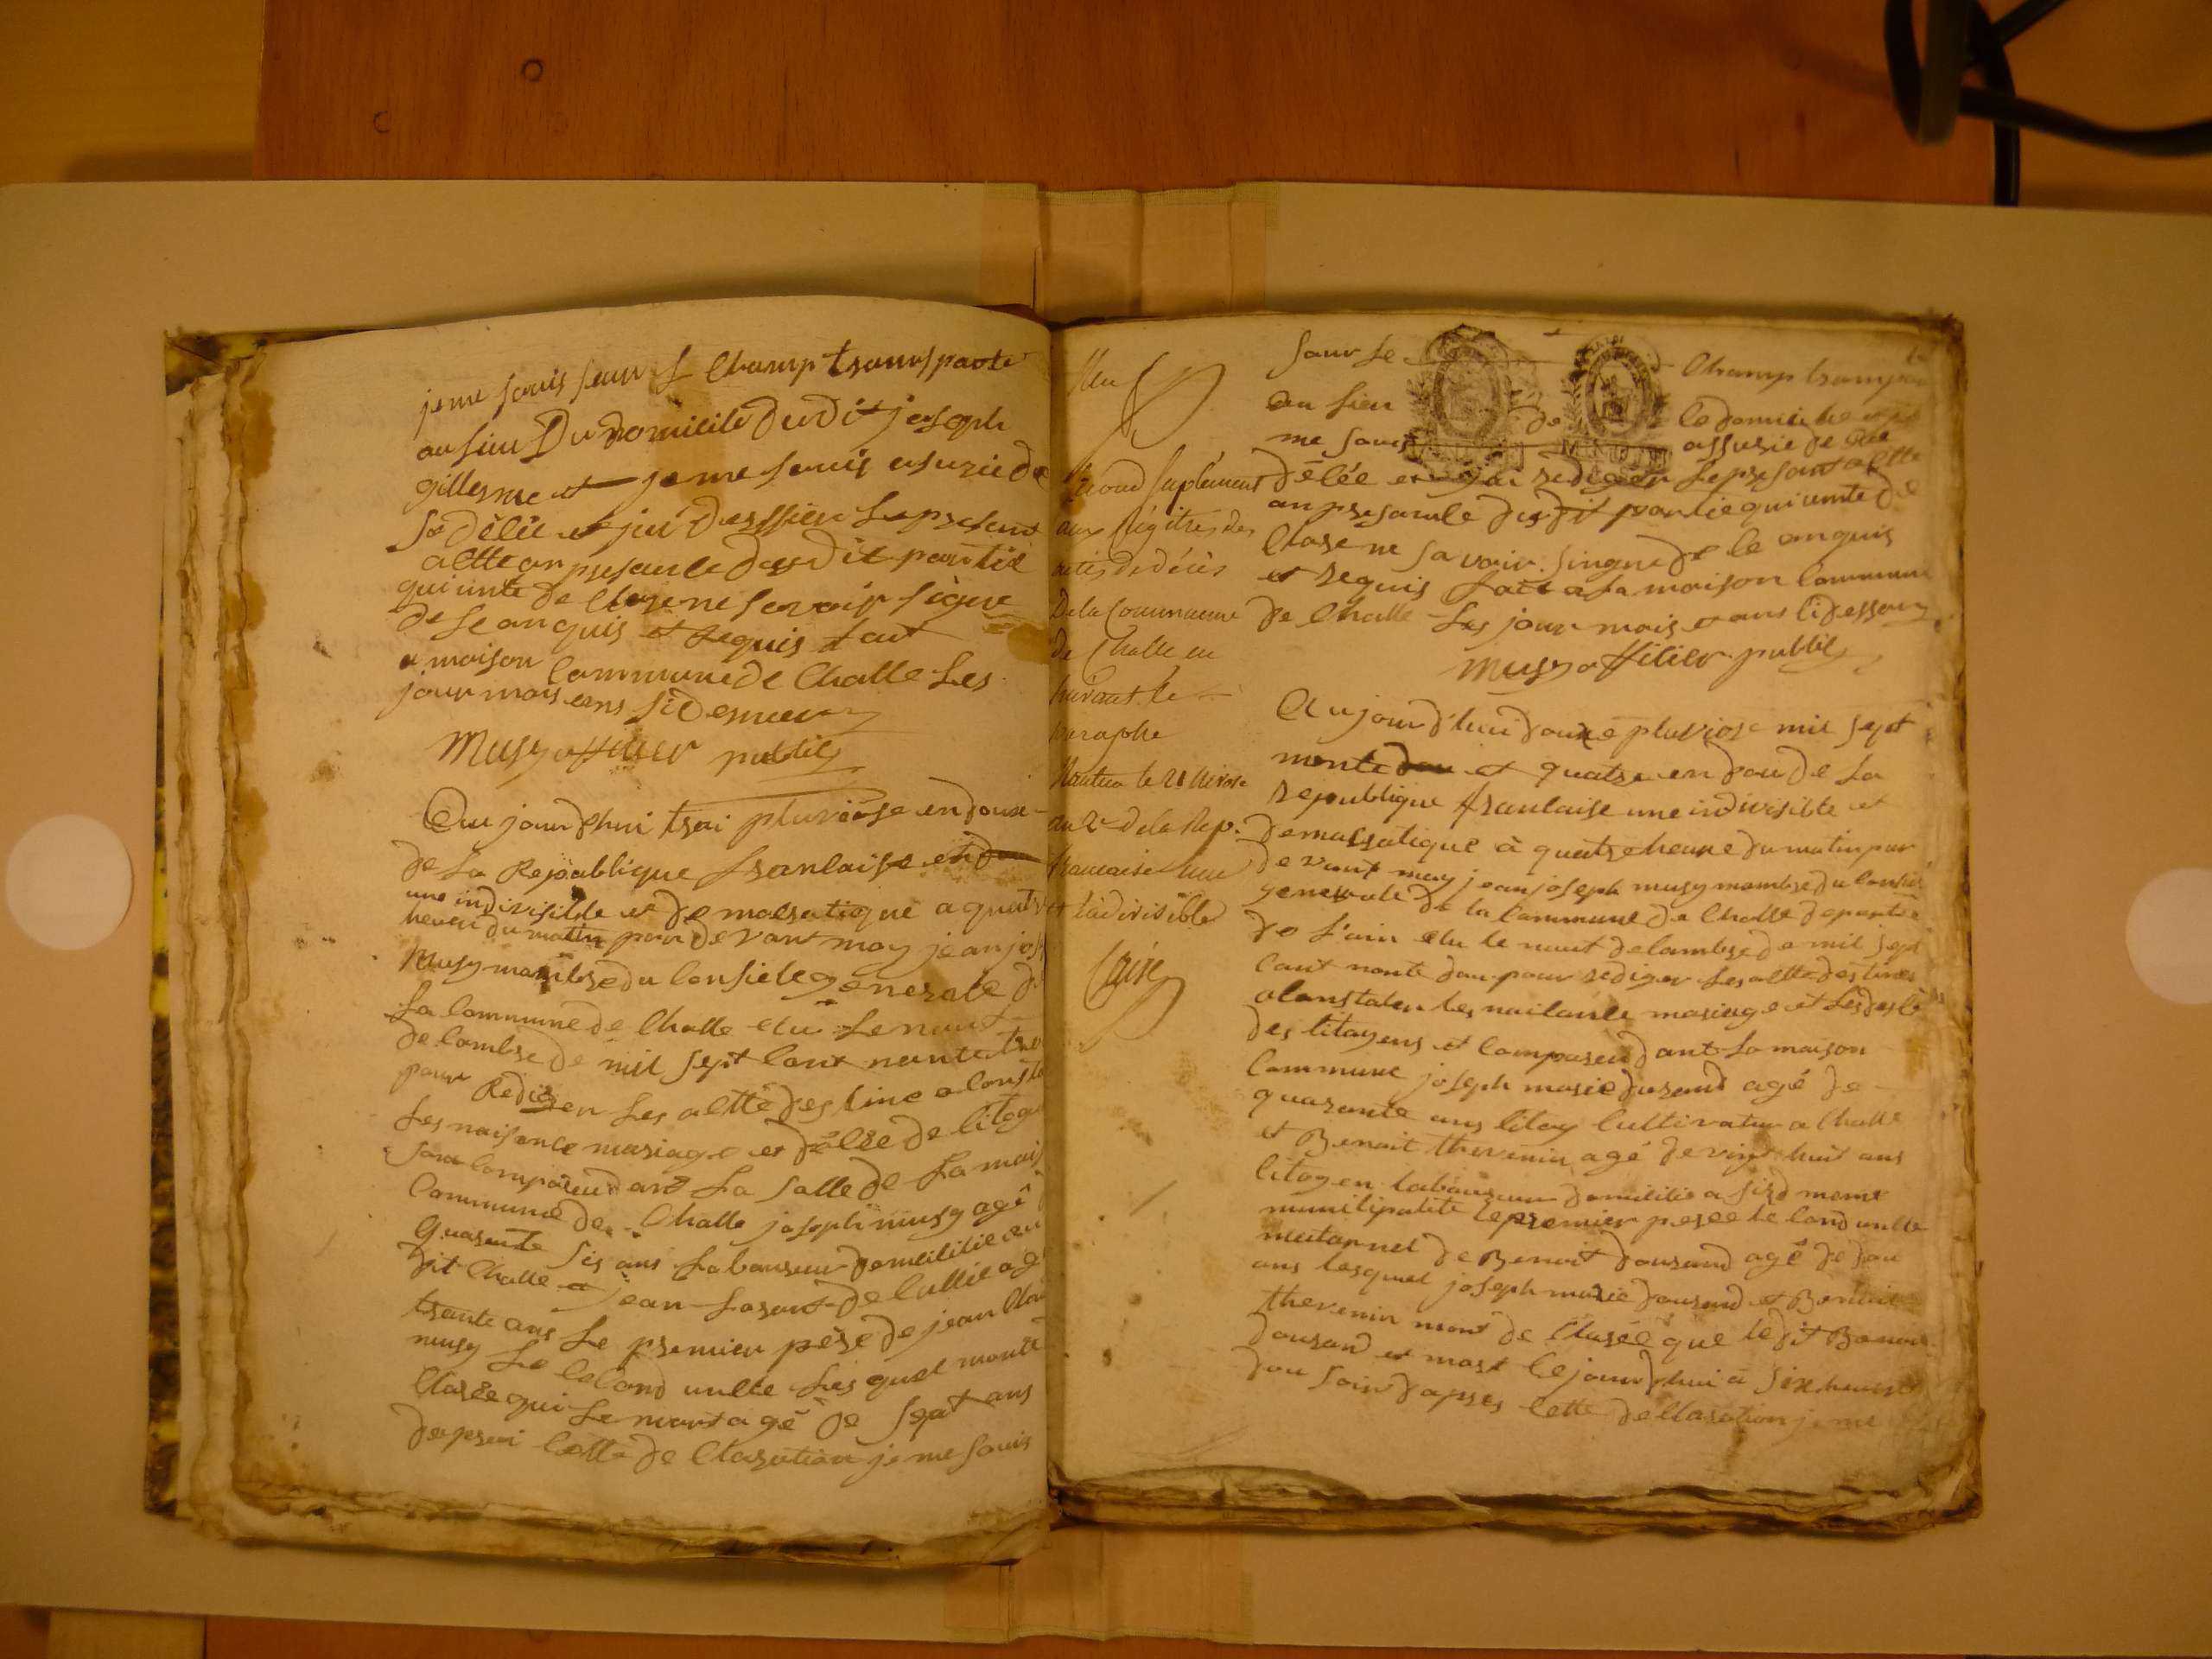 je me souis seur l Champ transporte
au lieu Du Domicile du dit joseph
gillerme et je me souis asurie de
sa délée et jui dessier le presant
altte an presanle desdit partie
qui unte de Clarene savoir signe
de le anquis et requis faut
a maison Commune de Challe Les
jour mois eans si Desneur
Musy officier publiq
Aujourdhui troi pluviose en doux
de La Republique franlaise
une indivisible et demolsratique a quatre
heure du matin pour devant moy jean jos
Musy manbre du Consiele generale de
La Commune de Challe elu Le nuut
delambre de mil sept Cant nante
pour Rediger Les altte destine a Const
Les naisance mariage et délée de litoye
sont Comparu dant La salle de La mais
Commune de Challe joseph musy agé
quarante sis ans Laboureur domicilie au
dit Challe et jean Lorant de Cullie ag
trante ans Le premier père de jean Clau
musy Le Cecond unlle Lesquel mont
Clarée qui Le mort agé de sept ans
dapsai Cette de Claration je me souis
Second suplément
aux régitres des
actes de décès
De la Commune
de Challe en
suivant le
paraphe
Nantua le 21 nivose
an 2e de la Rep.
francaise une
et indivisible
sour le Champ transpor
au lieu de le domicile et je
me souis assurie de
délée et jai redigér le presant altte
an presanle des dit partie qui unte de
Clarene savoir singne de le anquis
et requis fait a La maison Commune
de Challe Les jour mois et ans lidessous
Musy officier publiq
Aujourd'hui douxe pluviose mil sept
nonte et quatre en dou de La
Republique franlaise une indivisible et
demalsratique à quatre heure du matin par
devant moy jean joseph musy mambre du Consiel
generale de la Commune de Challe departe
de l'ain elu le nuut delambre de mil sept
Cant nonte dou pour rediger Les altte destines
a Constater Les naisanle mariage et Les deslé
des litoyens et Compareu dant La maison
Commune joseph marie durand agé de
quarante ans litoy Cultivateur a Challe
et Benoit thevenin agé de vingt huit ans
litoyen laboureur domicilie a sisd meme
munilipalite Le premier perée le Cecond unlle
maternel de Benoit dourand agé de dou
ans Lesquel joseph marie dourand et Benoit
thevenin mont de Clarée que ledit Benoit
dourand et mort Cejourdhui à six heures
dou soir dapres Cette de Claration je me